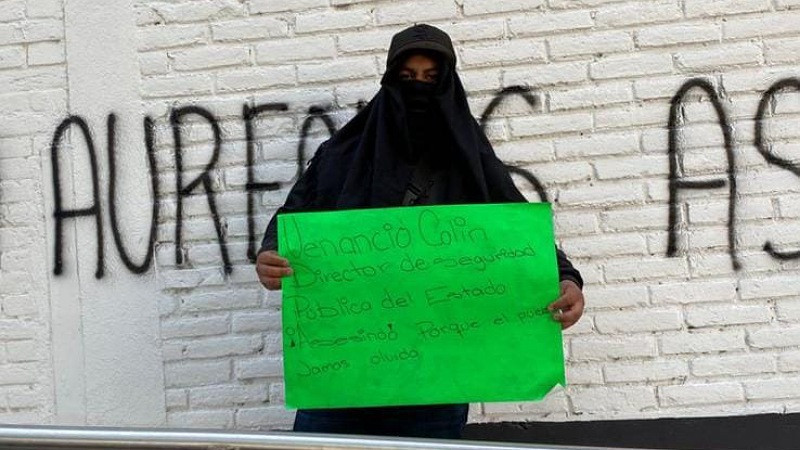 AUREO S AS
Venancio Colin
Director de seguridad
Pública del Estado
¡Asesino! Porque el
Jamas olvida